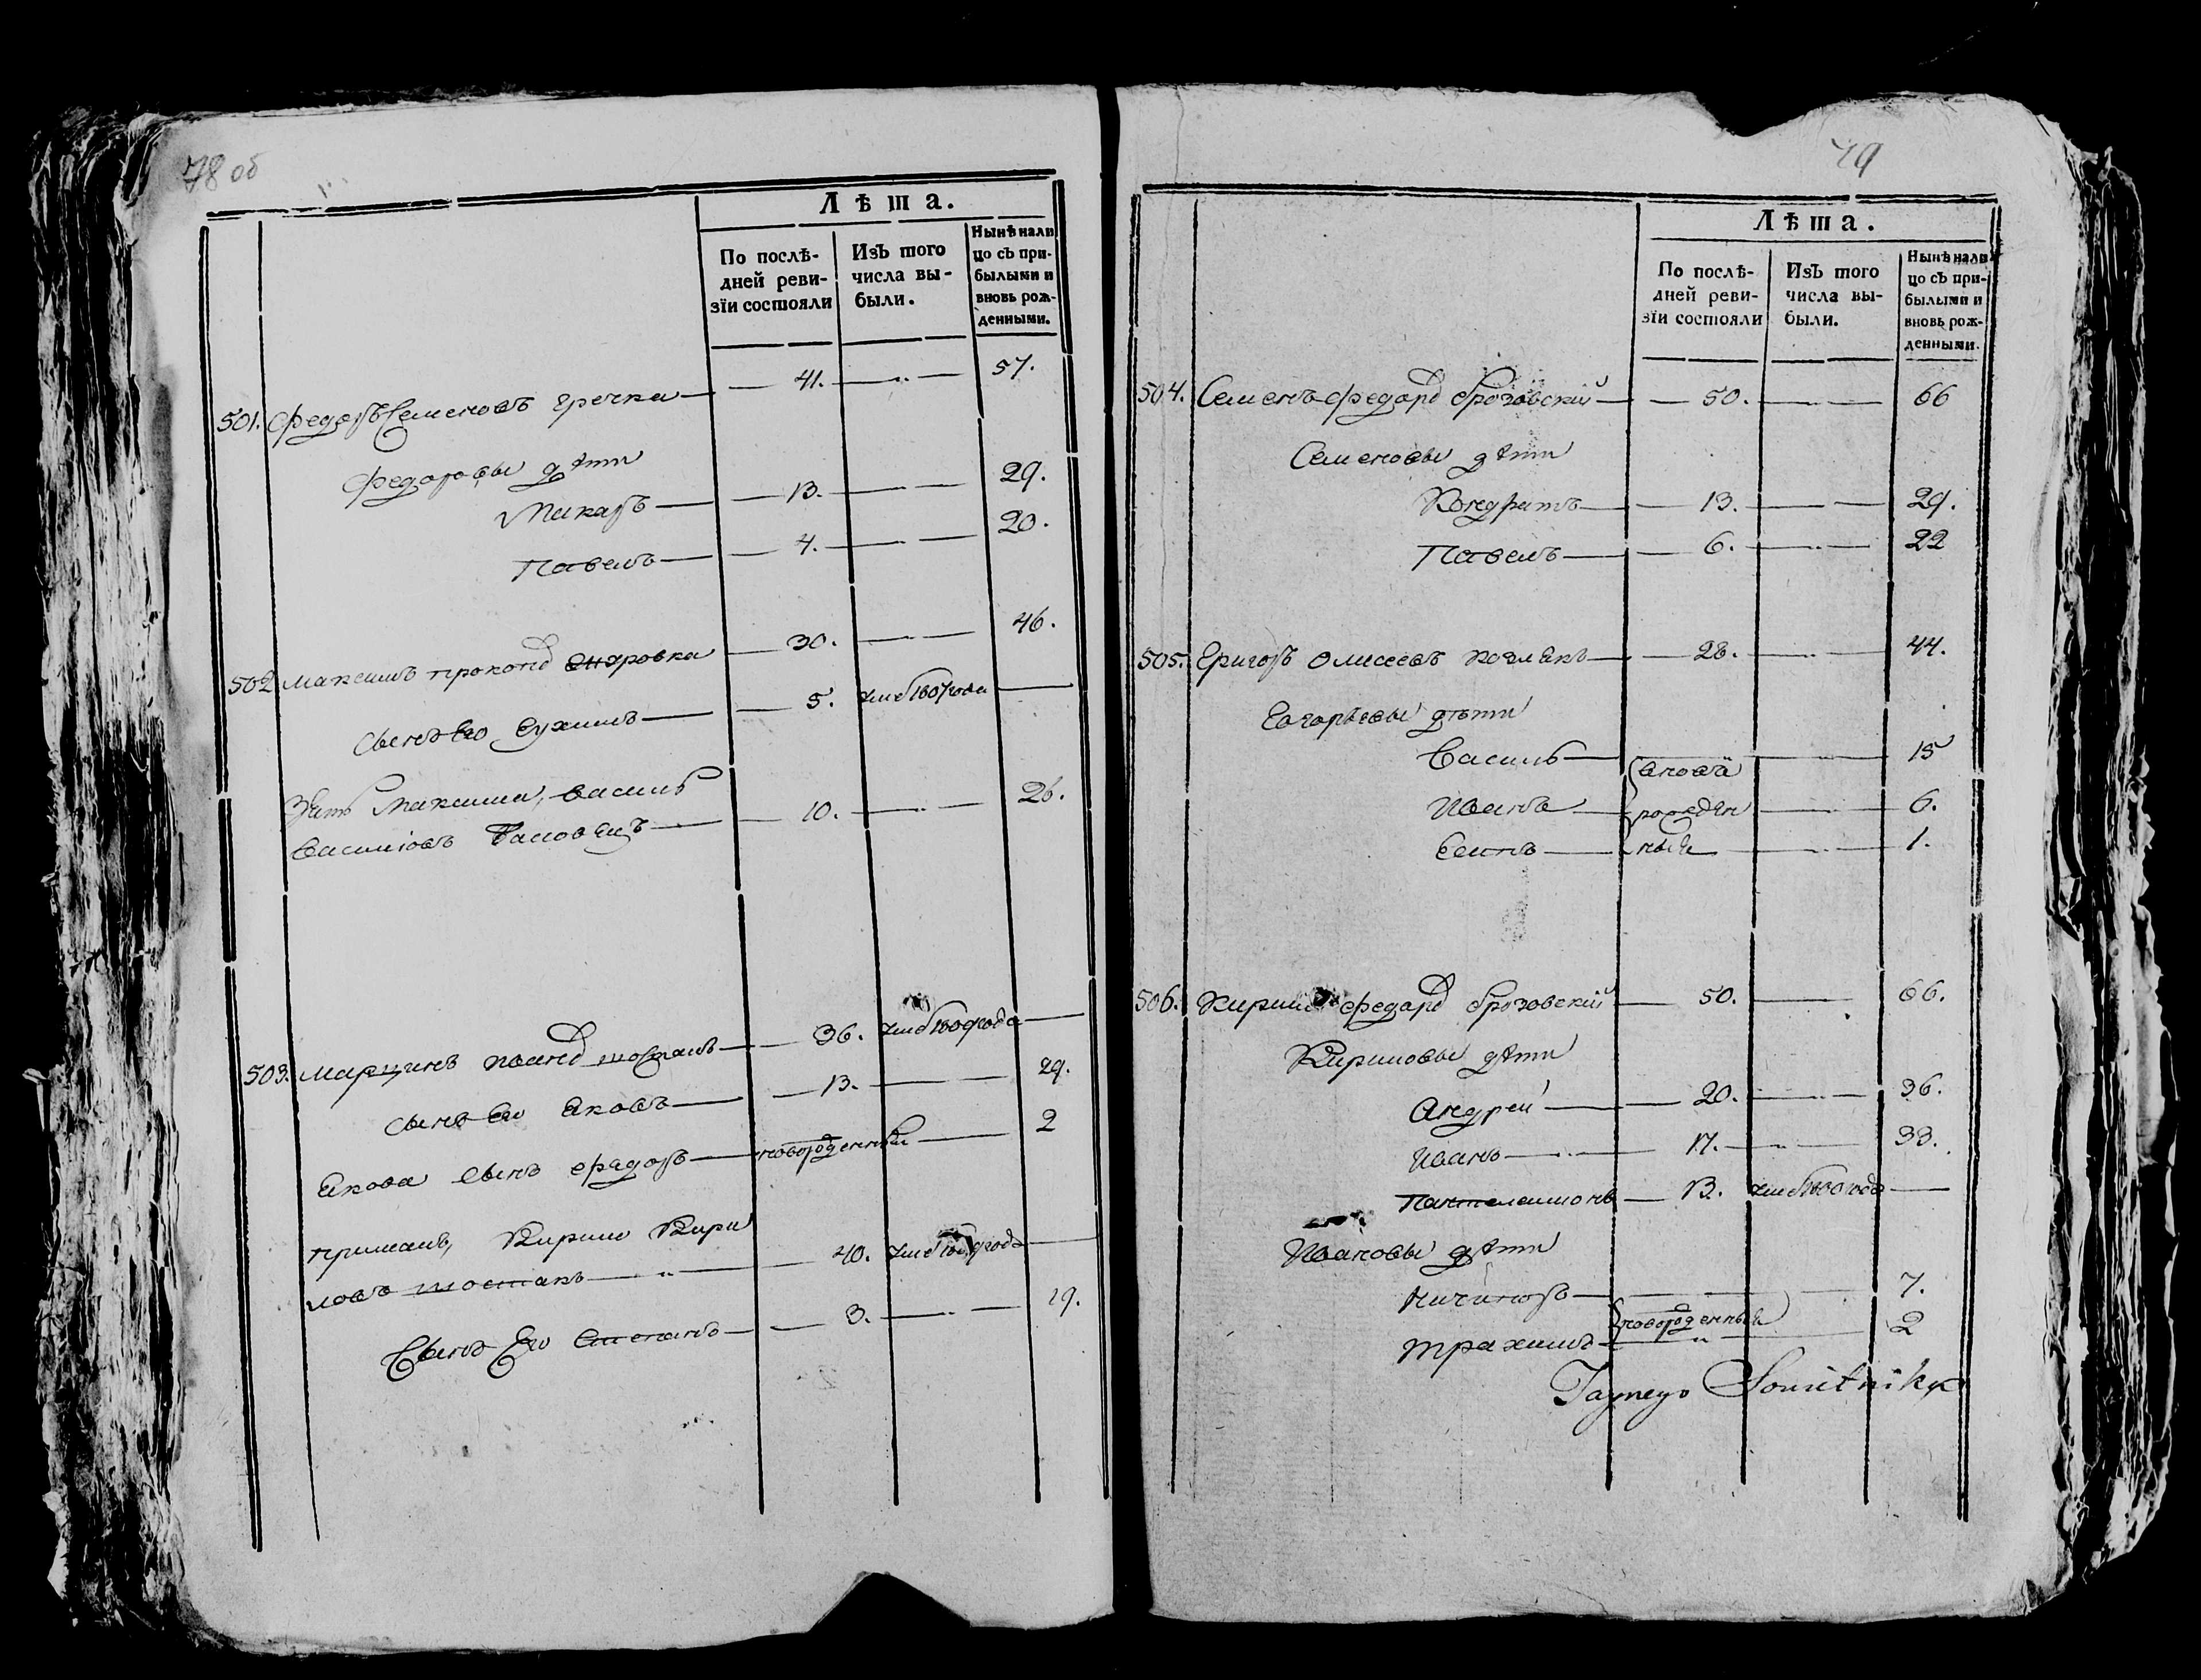 78 об
Лѣта.
По послѣ-
дней реви-
зіи состояли
Изъ того
числа вы-
были.
Нынѣ нали
цо съ при-
былыми и
вновь рож-
денными.
501. Федоръ Семеновъ гречка — 41. — 57.
Федоровы дѣти
Макаръ — 13. — 29.
Павелъ — 4. — 20.
502 Максимъ прокоп 30. — 46.
сынъ Его Еухимъ — 5. уме 1807 года —
Зять Максима, василь
Василіовъ — 10. — 26.
503. Марцинъ иван — 36. уме 1809 года —
сынъ Его Яковъ — 13. — 29.
Якова сынъ Федоръ — новорожденный — 2
примакъ, Кирило Кири
ловъ шостакъ — 40. уме года —
Сынъ Его Степанъ — 3. — 19.
79
Лѣта.
По послѣ-
дней реви-
зіи состояли
Изъ того
числа вы-
были.
Нынѣ нали
цо съ при-
былыми и
вновь рож-
денными.
504. Семенъ федор брозовскій — 50. — 66
Семеновы дѣти
Кондратъ — 13. — 29.
Павелъ — 6. — 22
505. Григоръ Олисеевъ — 28. — 44.
дѣти
Василь — вновь — 15
Иванъ — рожден — 6.
ные — 1.
506. Кирило федор брозовскій — 50. — 66.
Кириловы дѣти
Андрей — 20. — 36.
Иванъ — 17. — 33.
Пантелеимонъ — 13. уме 1800 года —
Ивановы дѣти
Ничипоръ — 7.
новорожденные
Трахимъ — 2
Taynego Sowietnika